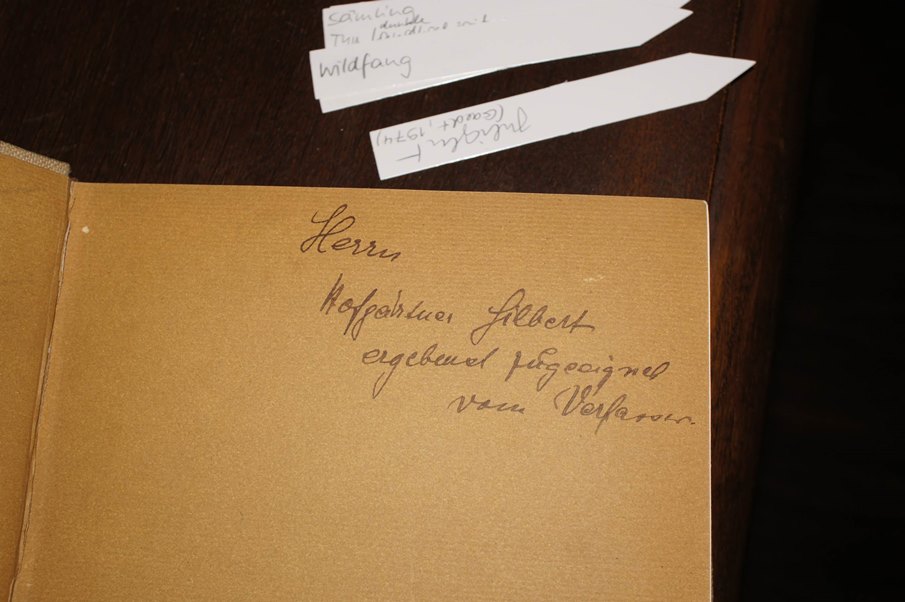 Sämling
dunkle
wildfang
(Gaedt, 1974)
Herrn
Hofgärtner Gilbert
ergebenst zugeeignet
vom Verfasser.